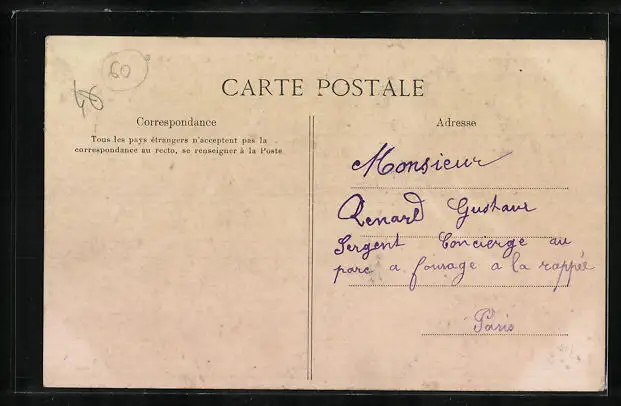 60
46
CARTE POSTALE
Correspondance
Tous les pays étrangers n'acceptent pas la
correspondance au recto, se renseigner à la Poste
Adresse
Monsieur
Renard Gustave
Sergent Concierge au
parc a fourage a la rappée
Paris